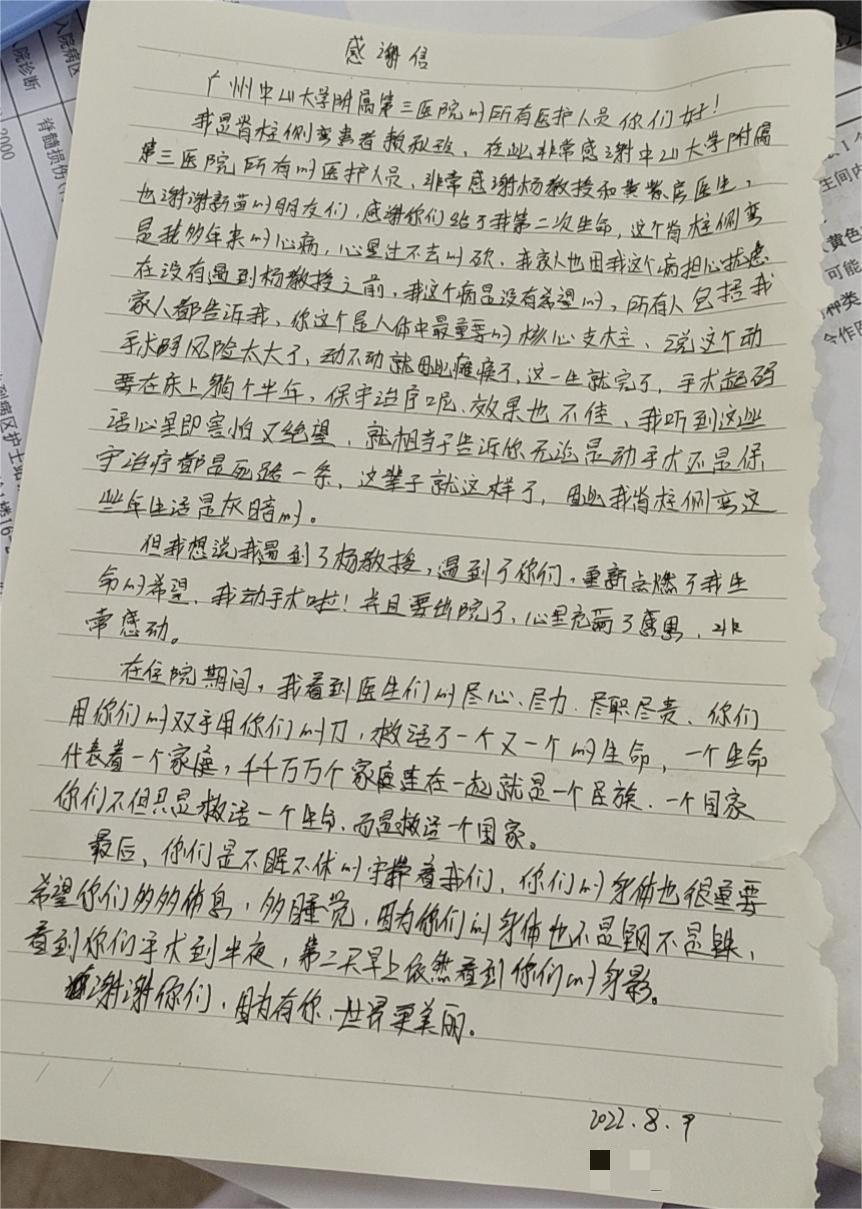 感谢信
广州中山大学附属第三医院的所有医护人员你们好！
我是脊柱侧弯患者 在此非常感谢中山大学附属
第三医院所有的医护人员，非常感谢杨教授和黄紫房医生，
也谢谢新苗的朋友们，感谢你们给了我第二次生命，这个脊柱侧弯
是我多年来的心病，心里过不去的砍，我家人也因我这个病担心扰虑
在没有遇到杨教授之前，我这个病是没有希望的，所有人包括我
家人都告诉我，你这个是人体中最重要的核心支柱、说这个动
手术呀风险太大了，动不动就因此瘫痪了，这一生就完了，手术起码
要在床上躺个半年，保守治疗呢、效果也不佳，我听到这些
话心里即害怕又绝望，就相当于告诉你无论是动手术还是保
守治疗都是死路一条，这辈子就这样了，因此我脊柱侧弯这
些年生活是灰暗的。
但我想说我遇到了杨教授，遇到了你们，重新点燃了我生
命的希望，我动手术啦！并且要出院了，心里充满了感恩，非
常感动。
在住院期间，我看到医生们的尽心、尽力、尽职尽责、你们
用你们的双手用你们的刀，救活了一个又一个的生命，一个生命
代表着一个家庭，千千万万个家庭连在一起就是一个民族、一个国家
你们不但只是救活一个生命，而是救活一个国家。
最后，你们是不眠不休的守护着我们，你们的身体也很重要
希望你们多多休息，多睡觉，因为你们的身体也不是钢不是铁，
看到你们手术到半夜，第二天早上依然看到你们的身影。
谢谢你们，因为有你，世界更美丽。
2022.8.9
入院病区
入院诊断
脊髓损伤
2000
病区护士站
生间内
黄色
可能
种类